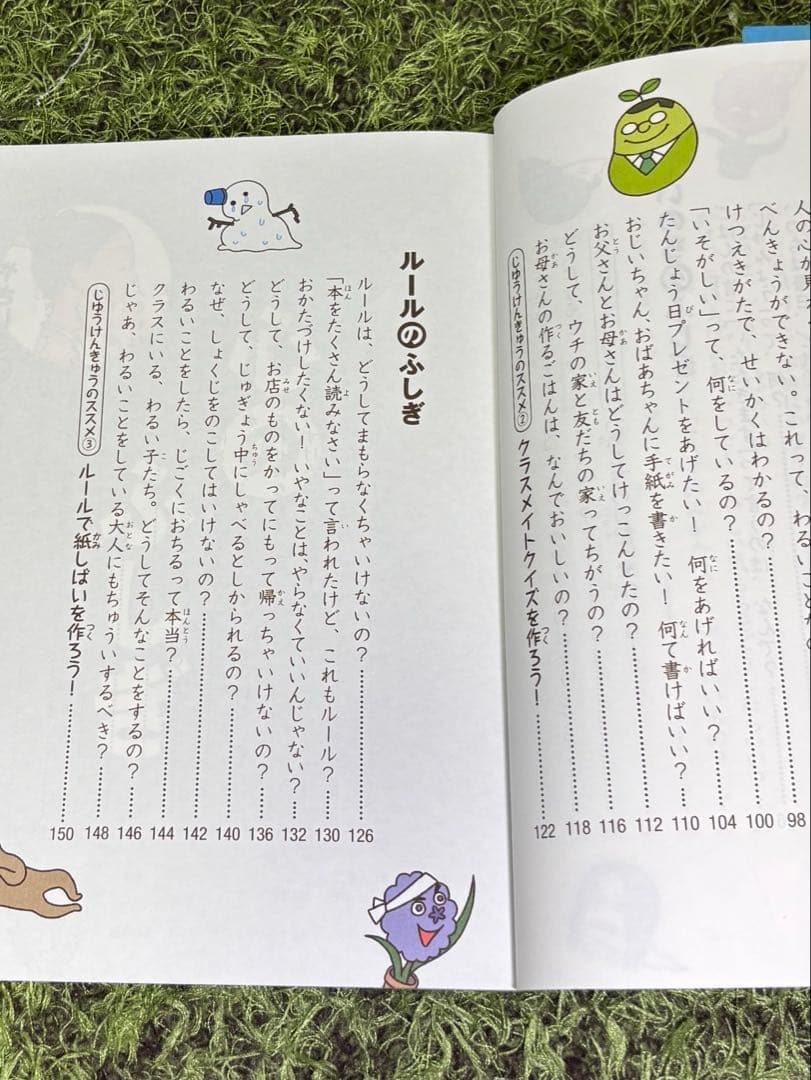 べんきょうができない。
けつえきがたで、せいかくはわかるの？ 98
「いそがしい」って、何をしているの？ 100
たんじょう日プレゼントをあげたい！　何をあげればいい？ 104
おじいちゃん、おばあちゃんに手紙を書きたい！　何て書けばいい？ 110
お父さんとお母さんはどうしてけっこんしたの？ 112
どうして、ウチの家と友だちの家ってちがうの？ 116
お母さんの作るごはんは、なんでおいしいの？ 118
じゆうけんきゅうのススメ② クラスメイトクイズを作ろう！ 122
ルールのふしぎ
ルールは、どうしてまもらなくちゃいけないの？ 126
「本をたくさん読みなさい」って言われたけど、これもルール？ 130
おかたづけしたくない！　いやなことは、やらなくていいんじゃない？ 132
どうして、お店のものをかってにもって帰っちゃいけないの？ 136
どうして、じゅぎょう中にしゃべるとしかられるの？ 140
なぜ、しょくじをのこしてはいけないの？ 142
わるいことをしたら、じごくにおちるって本当？ 144
クラスにいる、わるい子たち。どうしてそんなことをするの？ 146
じゃあ、わるいことをしている大人にもちゅういするべき？ 148
じゆうけんきゅうのススメ③ ルールで紙しばいを作ろう！ 150